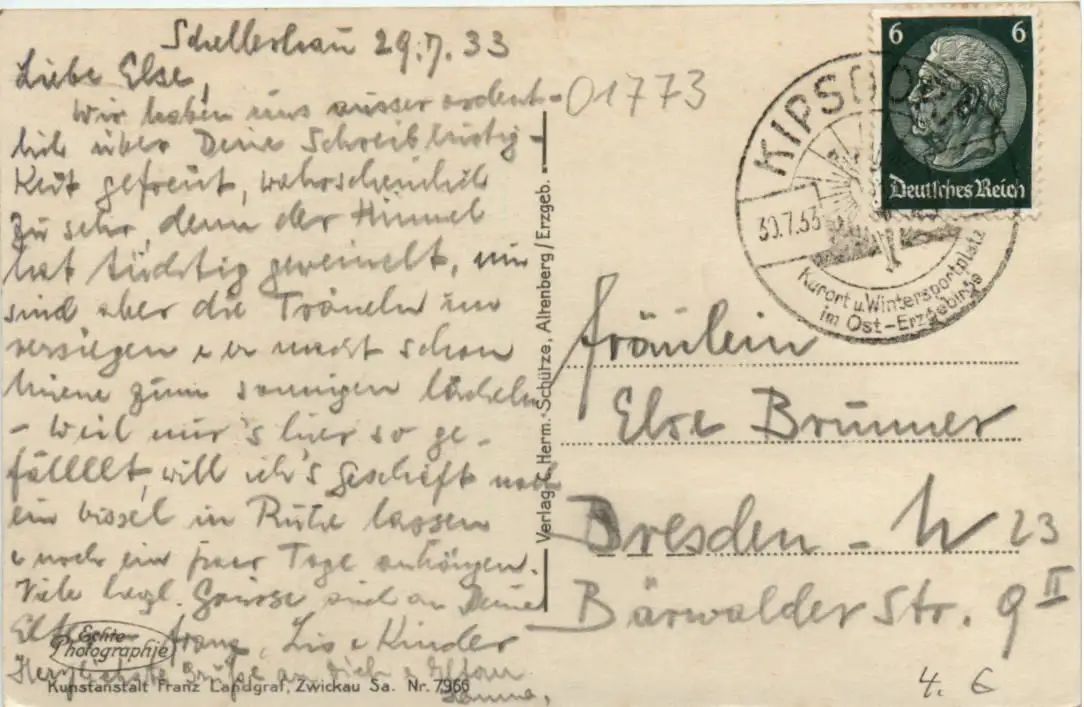 Schellerhau 29.7.33
Liebe Else,
Wir haben uns ausser ordent-
lich über Deine Schreiblustig-
keit gefreut, wahrscheinlich
zu sehr, denn der Himmel
hat tüchtig geweinelt, nun
sind aber die Träneln am
versiegen & er macht schon
Miene zum sonnigen lächeln
- Weil mir's hier so ge-
fälllt, will ich's Geschäft noch
ein bissel in Ruhe lassen
& noch ein paar Tage anhängen.
Viele herzl. Grüsse auch an Deine
Eltern Franz, Lis & Kinder
Herzlichste Grüße an Dich & Eltern
Echte
Photographie
Kunstanstalt Franz Landgraf, Zwickau Sa. Nr. 7966
Verlag C. Herm. Schütze, Altenberg/Erzgeb.
01773
KIPSDORF
30.7.33
Kurort u. Wintersportplatz
im Ost-Erzgebirge
6 6
Deutsches Reich
Fräulein
Else Brunner
Dresden - N 23
Bärwalder Str. 9 II
4. 6